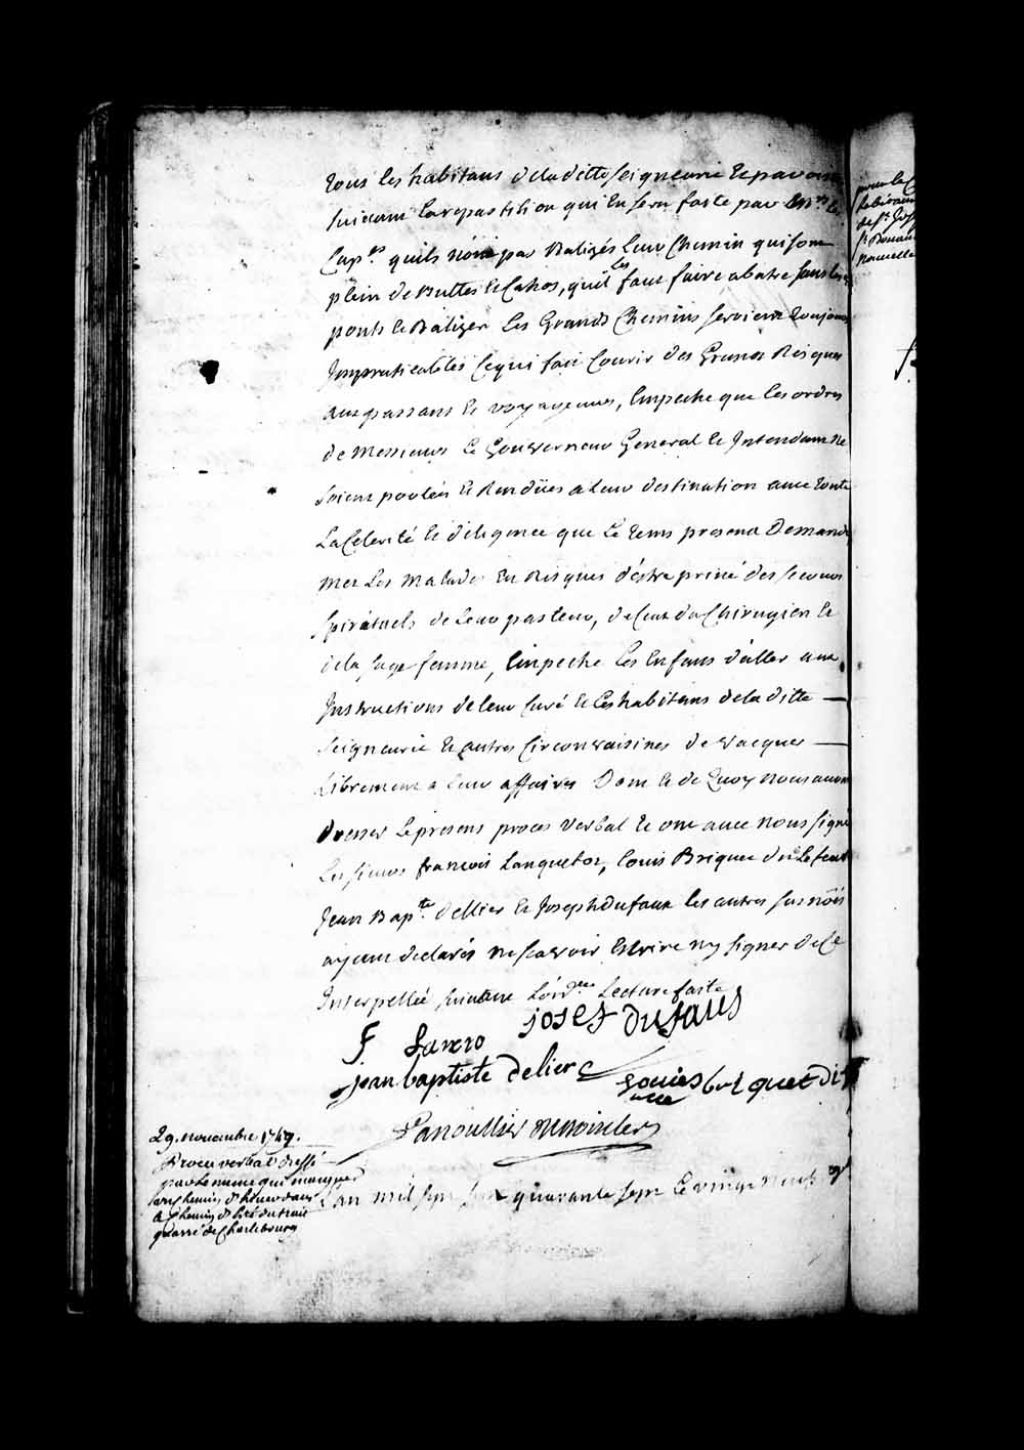 tous les habitans de la ditte seigneurie et paroisse
suivant la repartition qui en sera faite par Mrs les
Capnes quils nont pas Balizés leur Chemin qui sont
plein de Buttes et Cahos, quil les faut faire abatre sans les
ponts et Balizer les Grands Chemins seroient toujours
Impraticables Ce qui fait Courir des Grands Risques
aux passans et voyageurs, Empeche que les ordres
de Messieurs Le Gouverneur General et Intendant ne
soient portées et Rendües a leur destination avec toute
La Celerité et diligence que Le tems present Demande
met Les Malades En Risques d'estre privé des secours
spirituels de Leur pasteur, de Ceux du Chirugien et
de la sage femme, Empeche Les Enfans d'aller aux
Instructions de leur Curé et les habitans de la ditte
seigneurie et autres Circonvoisines de vacquer
Librement a leur affaires Dont et de Quoy nous avons
dresser Le present proces verbal et ont avec nous signé
Les sieurs francois Languetor, Louis Briquet dit
Jean Bapte dellier et Joseph dufaux les autres susnoës
ayant declarés ne scavoir Escrire ny signer de Ce
Interpellée suivant Lordce Lecture faite
josef dufaus
F
jean baptiste delier
Louies briquet dit
Lanoullier DeBoisclerc
29. novembre 1747.
Procès verbal dressé
par Le meme qui marque
les chemin d'hiver dans
quarré de Charlebourg
L'an mil sept cent quarante sept Le vingt neuf